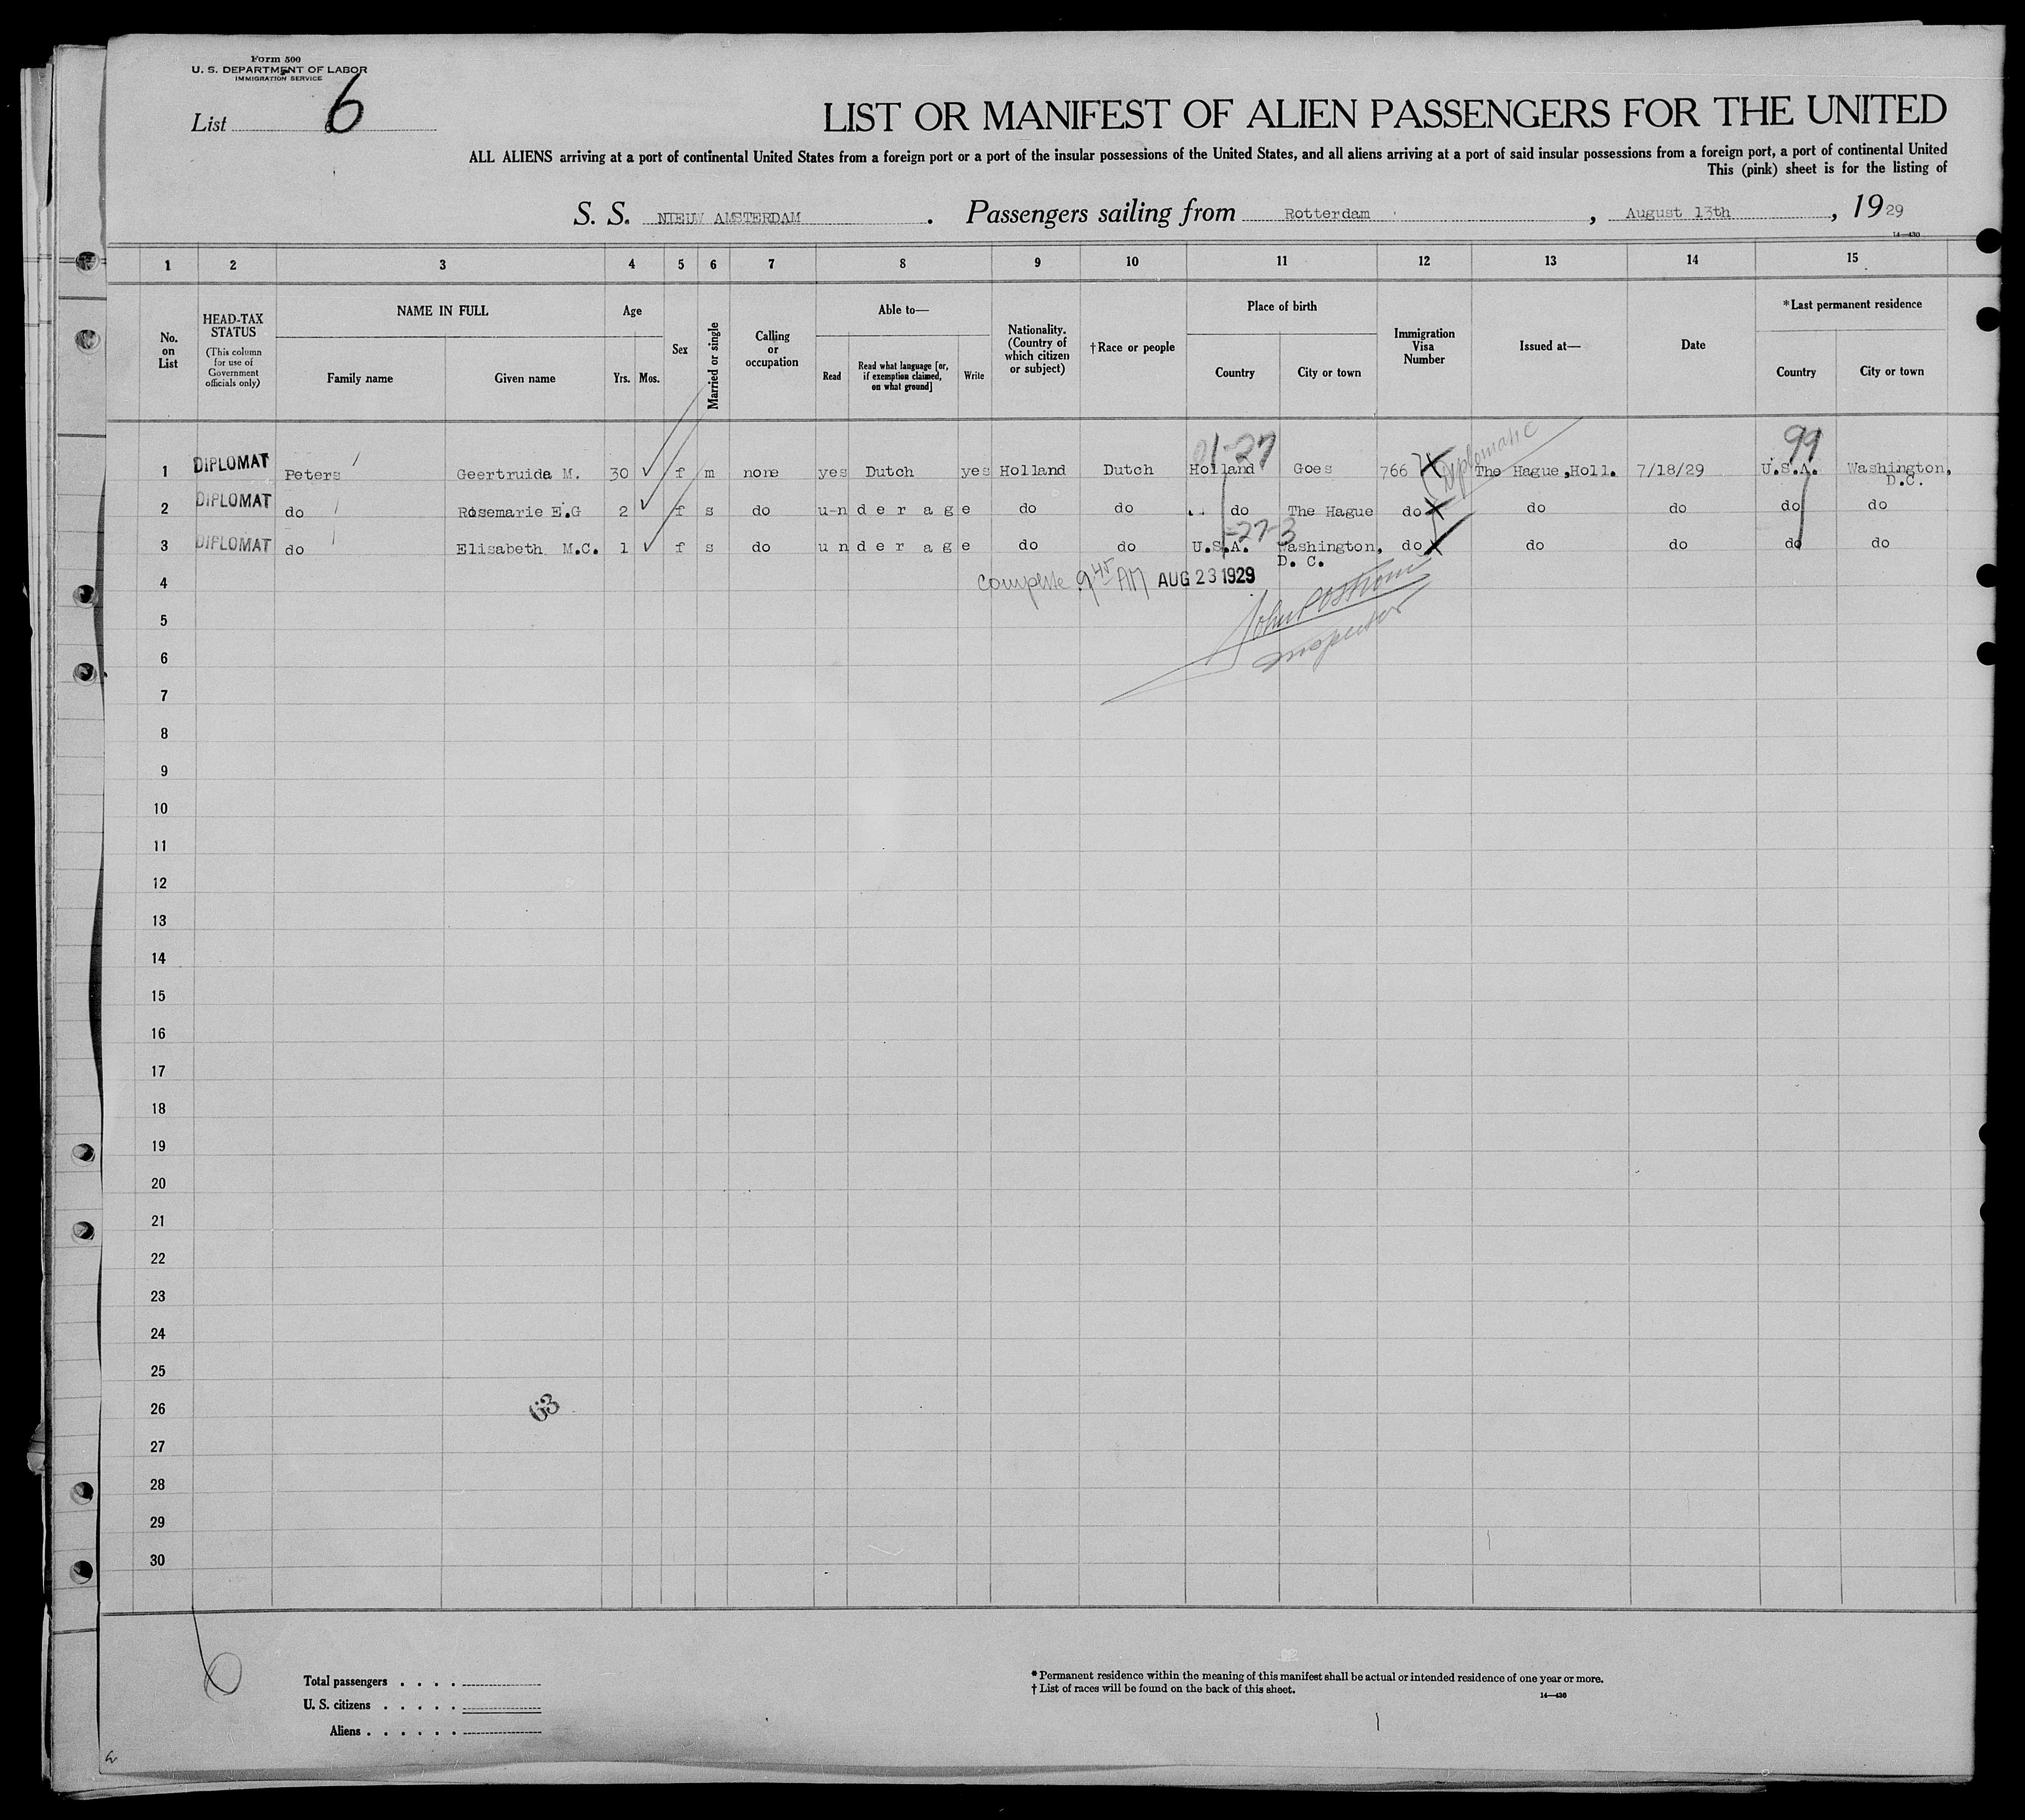 Form 500
U. S. DEPARTMENT OF LABOR
IMMIGRATION SERVICE
List 6
LIST OR MANIFEST OF ALIEN PASSENGERS FOR THE UNITED
ALL ALIENS arriving at a port of continental United States from a foreign port or a port of the insular possessions of the United States, and all aliens arriving at a port of said insular possessions from a foreign port, a port of continental United
This (pink) sheet is for the listing of
S. S. NIEUW AMSTERDAM. Passengers sailing from Rotterdam, August 13th, 1929
14—430
1 2 3 4 5 6 7 8 9 10 11 12 13 14 15
No. on List
HEAD-TAX STATUS (This column for use of Government officials only)
NAME IN FULL
Family name Given name
Age
Yrs. Mos.
Sex
Married or single
Calling or occupation
Able to—
Read Read what language [or, if exemption claimed, on what ground] Write
Nationality. (Country of which citizen or subject)
†Race or people
Place of birth
Country City or town
Immigration Visa Number
Issued at—
Date
*Last permanent residence
Country City or town
Diplomatic
99
1 DIPLOMAT Peters Geertruida M. 30 f m none yes Dutch yes Holland Dutch Holland Goes 766 The Hague,Holl. 7/18/29 U.S.A. Washington, D.C.
2 DIPLOMAT do Rosemarie E.G 2 f s do u-n d e r a g e do do do The Hague do do do do do
27-3
3 DIPLOMAT do Elisabeth M.C. 1 f s do u n d e r a g e do do U.S.A. Washington, D. C. do do do do do
4 Complete 9 45 AM AUG 23 1929
5
6 Inspector
7
8
9
10
11
12
13
14
15
16
17
18
19
20
21
22
23
24
25
26
63
27
28
29
30
6
Total passengers . . . .
U. S. citizens . . . . .
Aliens . . . . . .
* Permanent residence within the meaning of this manifest shall be actual or intended residence of one year or more.
† List of races will be found on the back of this sheet.
14—430